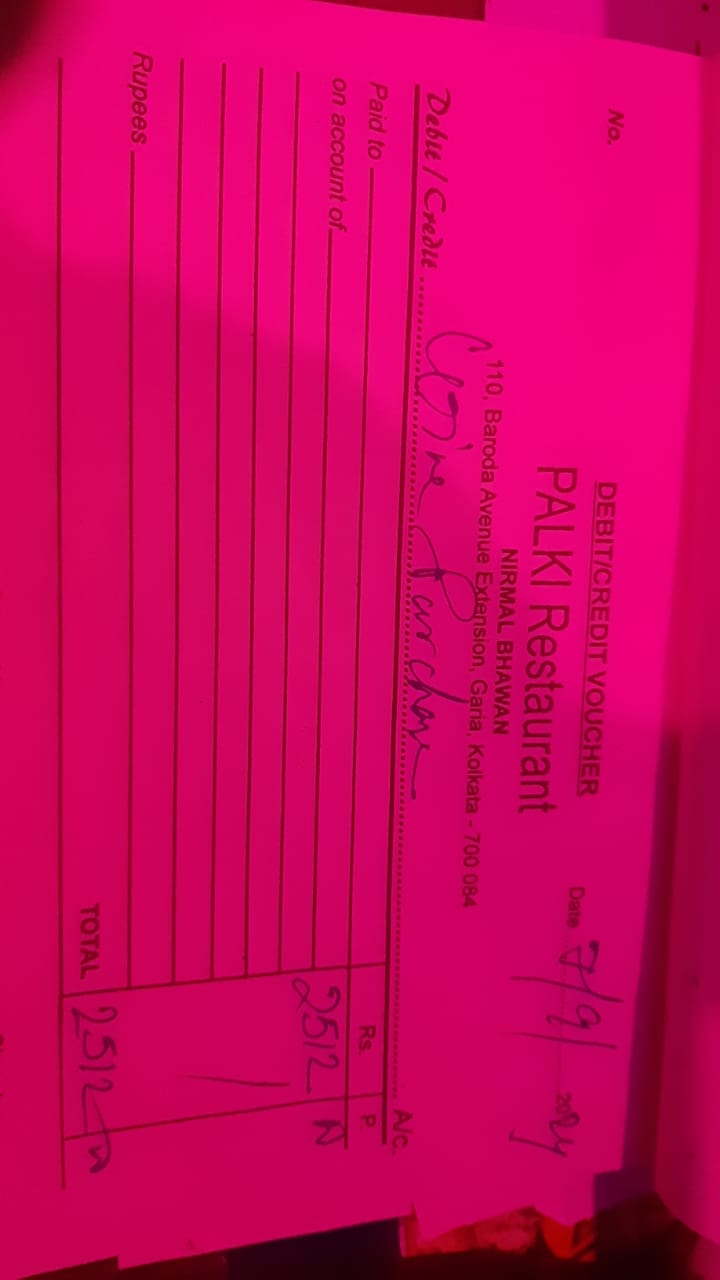 No.
DEBIT/CREDIT VOUCHER
PALKI Restaurant
Date 7/9/ 2024
NIRMAL BHAWAN
110, Baroda Avenue Extension, Garia, Kolkata - 700 084
Debit / Credit Purchase A/c.
Paid to Rs. P.
on account of 2512
Rupees
TOTAL 2512